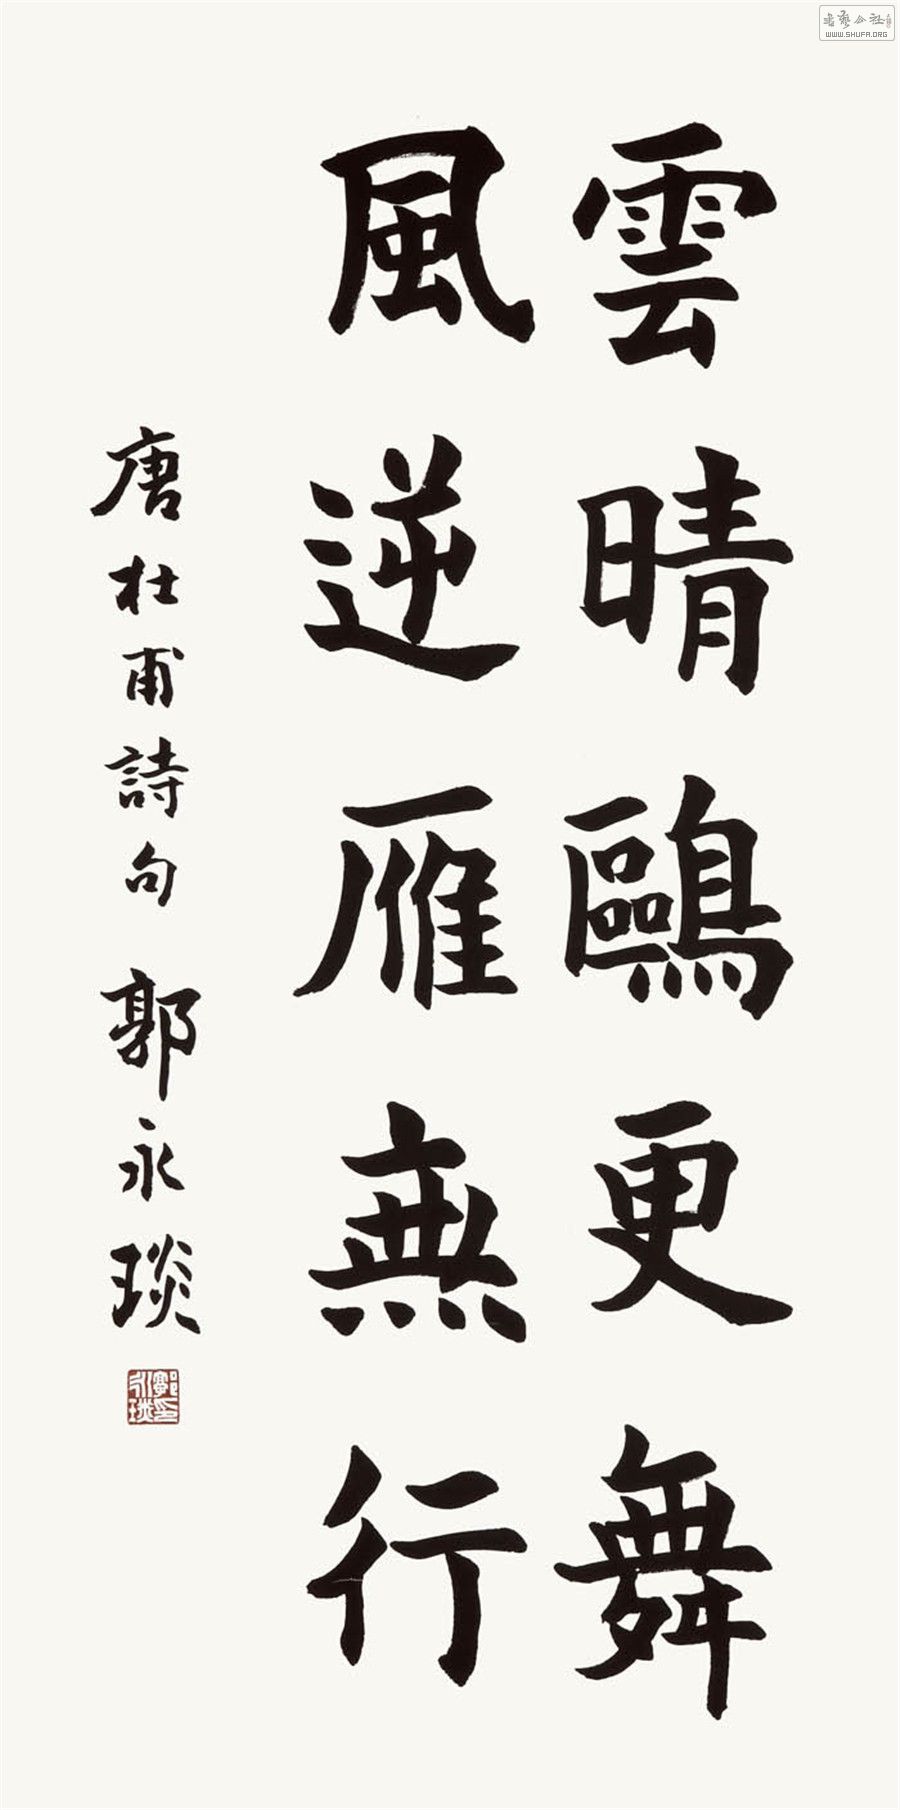 雲晴鷗更舞
風逆雁無行
唐杜甫詩句 郭永琰
郭印永琰
WWW.SHUFA.ORG